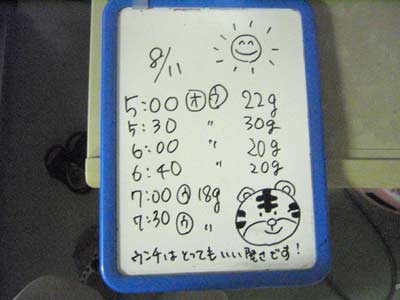 8/11
5:00 オ ウ 22g
5:30 〃 30g
6:00 〃 20g
6:40 〃 20g
7:00 ウ 18g
7:30 ウ 〃
ウンチはとってもいい硬さです!